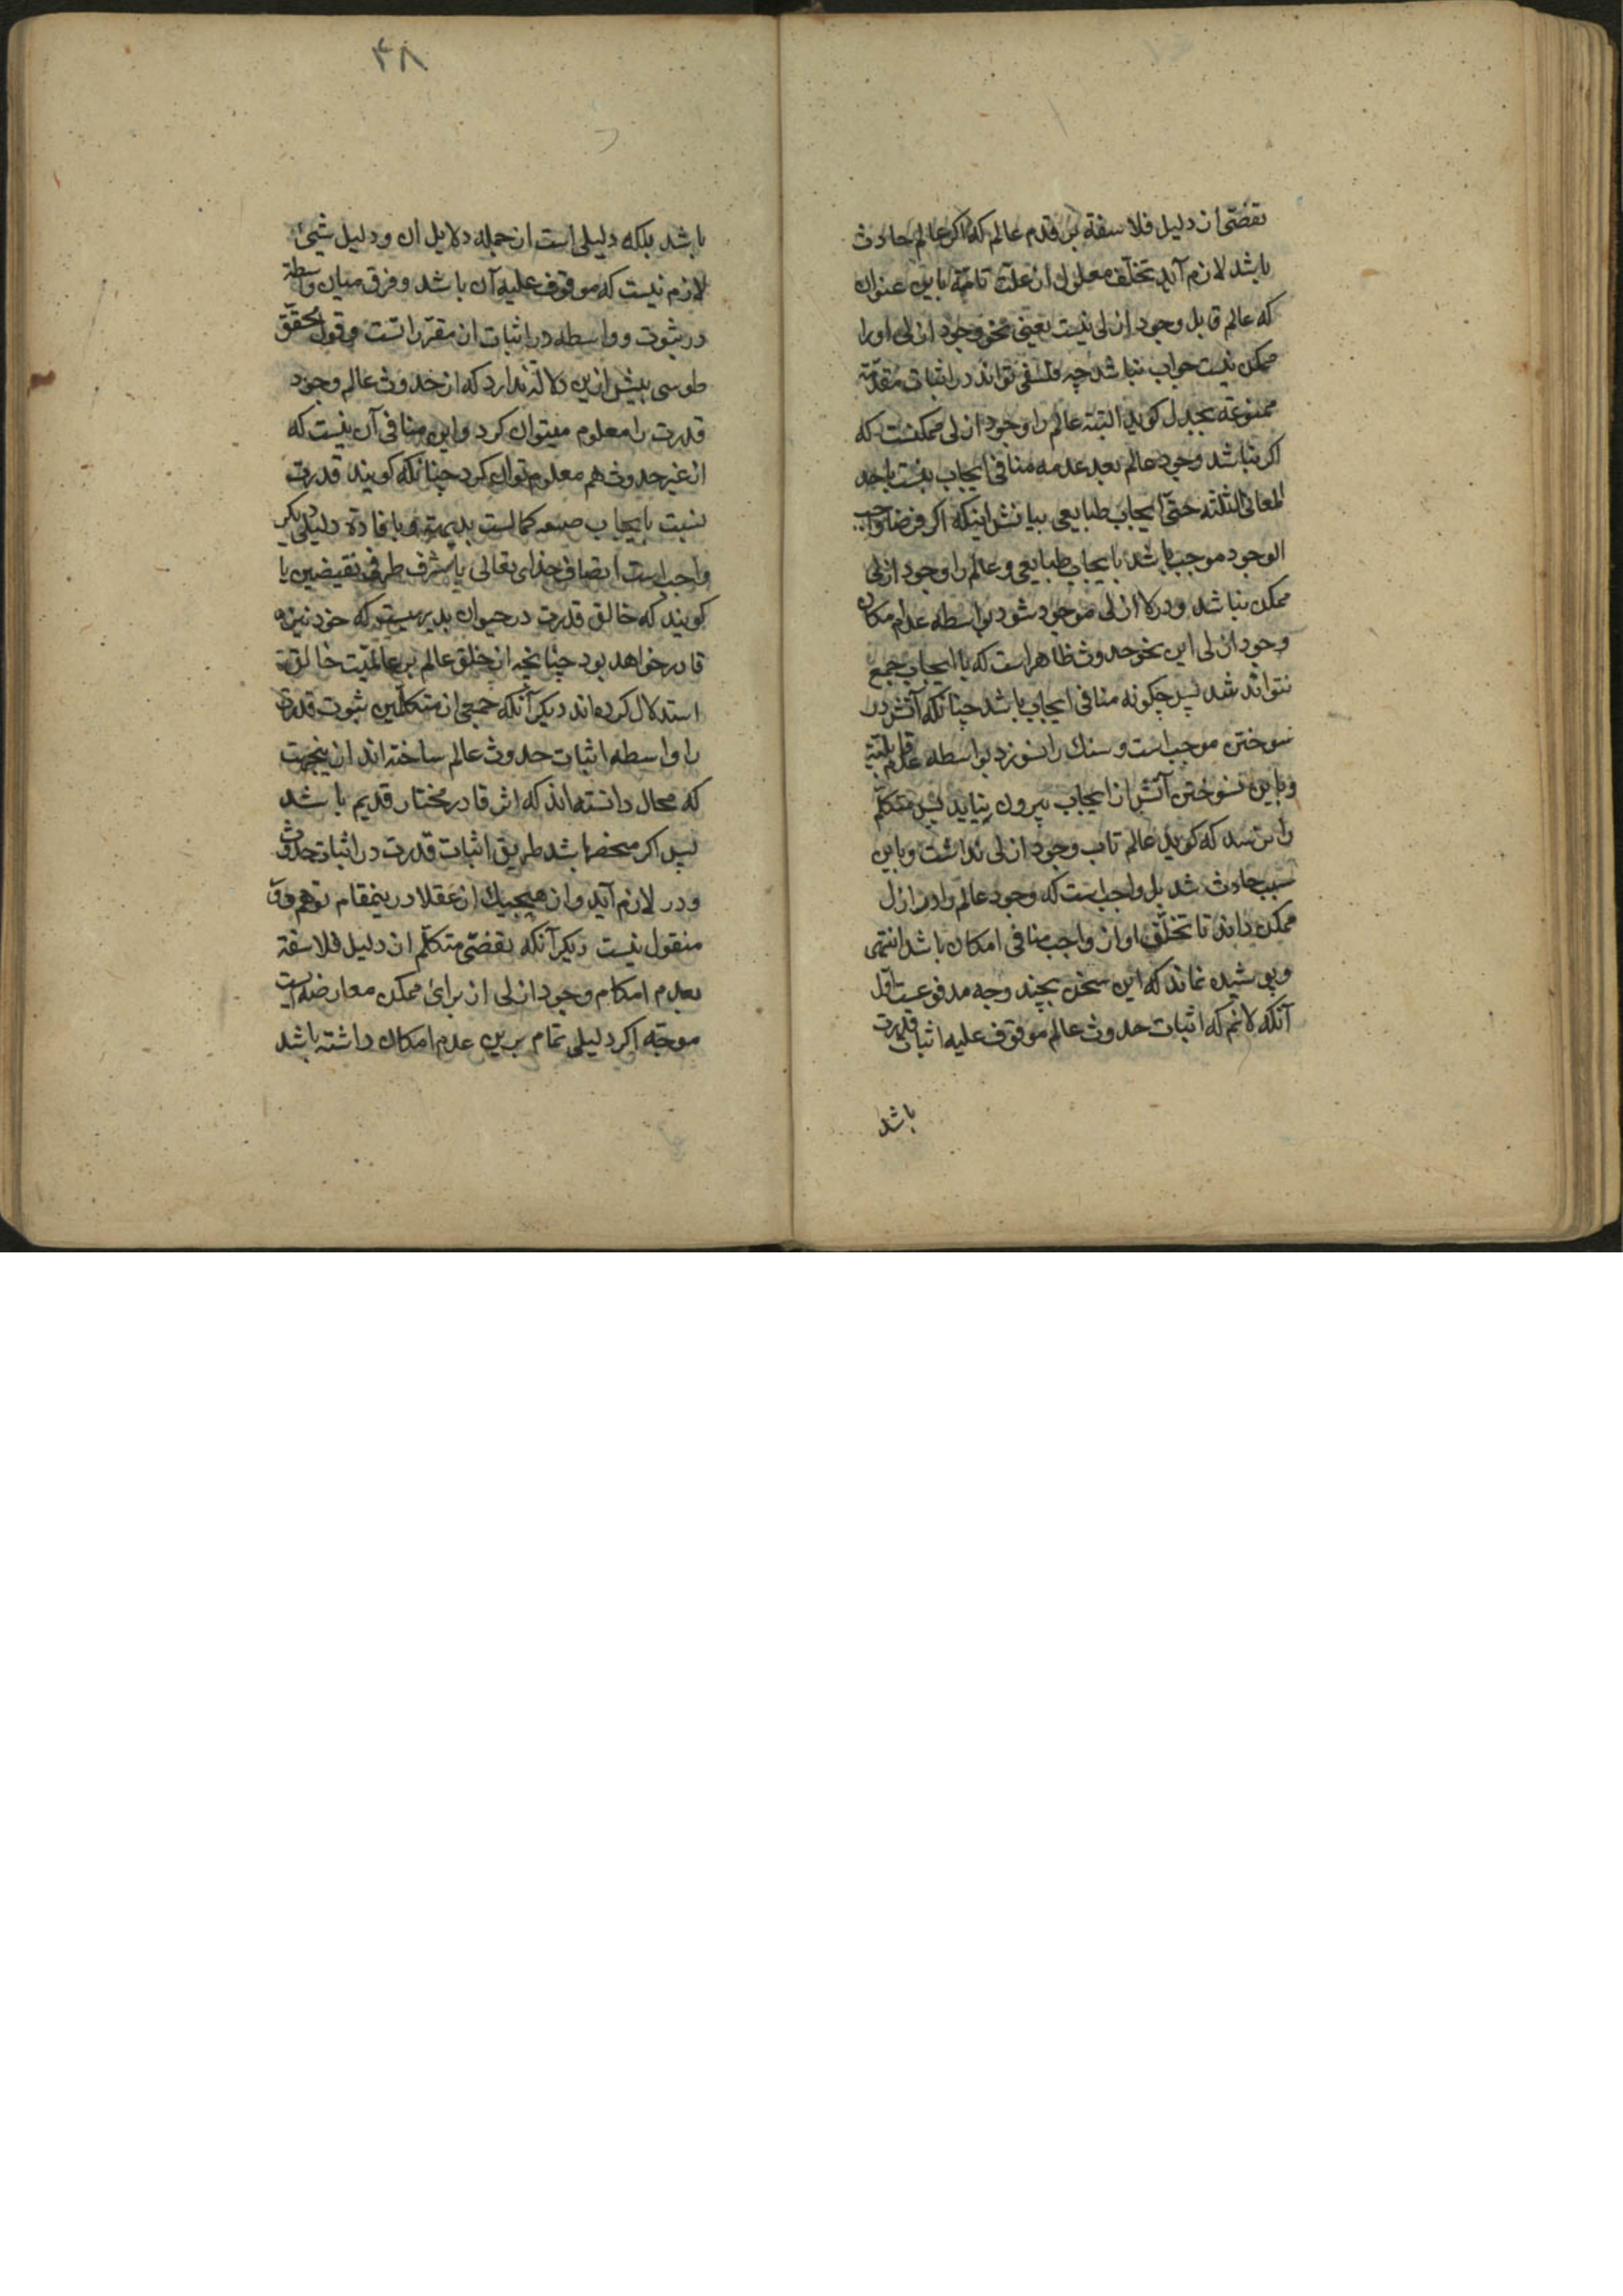 تقضّی از دلیل فلاسفة بر قدم عالم که اکر عالم حادث
باشد لازم آید تخلّف معلول از علّت تامّة باین عنوان
که عالم قابل وجود ازلی نیست یعنی نحو وجود ازلی او را
ممکن نیست جواب نباشد چه فلسفی تواند در اثبات مقدّمة
ممنوعة بجدل کوید البتة عالم را وجود ازلی ممکنست که
اکر نباشد وجود عالم بعد عدمه منافی ایجاب نیست باحد
المعانی الثلثة حتّی ایجاب طبایعی بیانش اینکه اکر فرضا واجب
الوجود موجب باشد بایجاب طبایعی و عالم را وجود ازلی
ممکن نباشد و در لا ازلی موجود شود بواسطه عدم امکان
وجود ازلی این نحو حدوث ظاهر است که با ایجاب جمع
نتواند شد پس چکونه منافی ایجاب باشد چنانکه آتش در
سوختن موجب است و سنك را نسوزد بواسطه عدم قابلیّة
و باین نسوختن آتش از ایجاب بیرون نیاید پس متکلّم
را نرسد که کوید عالم تاب وجود ازلی نداشت و باین
سبب حادث شد بل واجب است که وجود عالم را در ازل
ممکن داند تا تخلّف او از واجب منافی امکان باشد انتهی
و پوشیده نماند که این سخن بچند وجه مدفوعست اوّل
آنکه لانم که اثبات حدوث عالم موقوف علیه اثبات قدرت
باشد
۴۸
باشد بلکه دلیلی است از جمله دلایل ان و دلیل شیئ
لازم نیست که موقوف علیه آن باشد و فرق میان واسطة
در ثبوت و واسطه در اثبات ان مقرّراتست و قول محقّق
طوسی بیش ازین دلالة ندارد که از حدوث عالم وجود
قدرت را معلوم میتوان کرد و این منافی آن نیست که
از غیر حدوث هم معلوم توان کرد چنانکه کویند قدرت
نسبت بایجاب صفه کمالست بدیهة و بافادة دلیلی دیکر
واجب است اتصاف خدای تعالی باشرف طرفی نقیضین یا
کویند که خالق قدرت در حیوان بدیهیست که خود نیز
قادر خواهد بود چنانچه از خلق عالم بر عالمیّت خالق
استدلال کرده‌اند دیکر آنکه جمعی از متکلّمین ثبوت قدرت
را واسطه اثبات حدوث عالم ساخته اند ازینجهت
که محال دانسته‌اند که اثر قادر مختار قدیم باشد
پس اکر منحصر باشد طریق اثبات قدرت در اثبات حدوث
دور لازم آید و از هیچیك از عقلا درینمقام توهم دور
منقول نیست دیکر آنکه تقضّی متکلّم از دلیل فلاسفة
بعدم امکام وجود ازلی از برای ممکن معارضه ایست
موجّه اکر دلیلی تمام برین عدم امکان داشته باشد